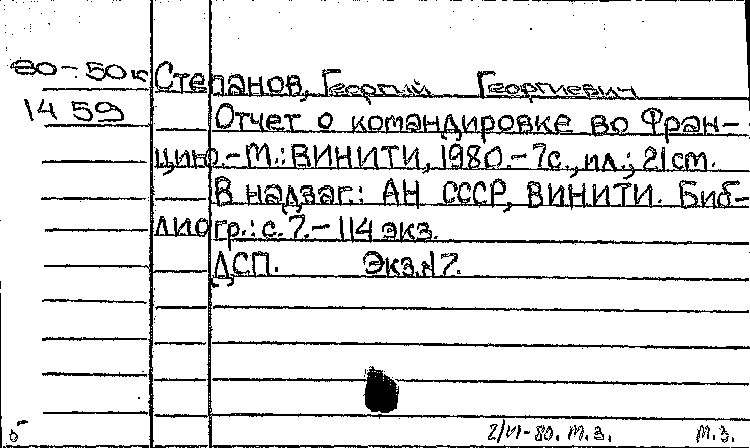 80-50к Степанов, Георгий Георгиевич
1459 Отчет о командировке во Фран-
цию.-М.: ВИНИТИ, 1980.-7с., ил.; 21 ст.
В надзаг.: АН СССР, ВИНИТИ. Биб-
лиогр.: с.7.-114 экз.
ДСП. Экз.№7.
2/VI-80. т.з. т.з.